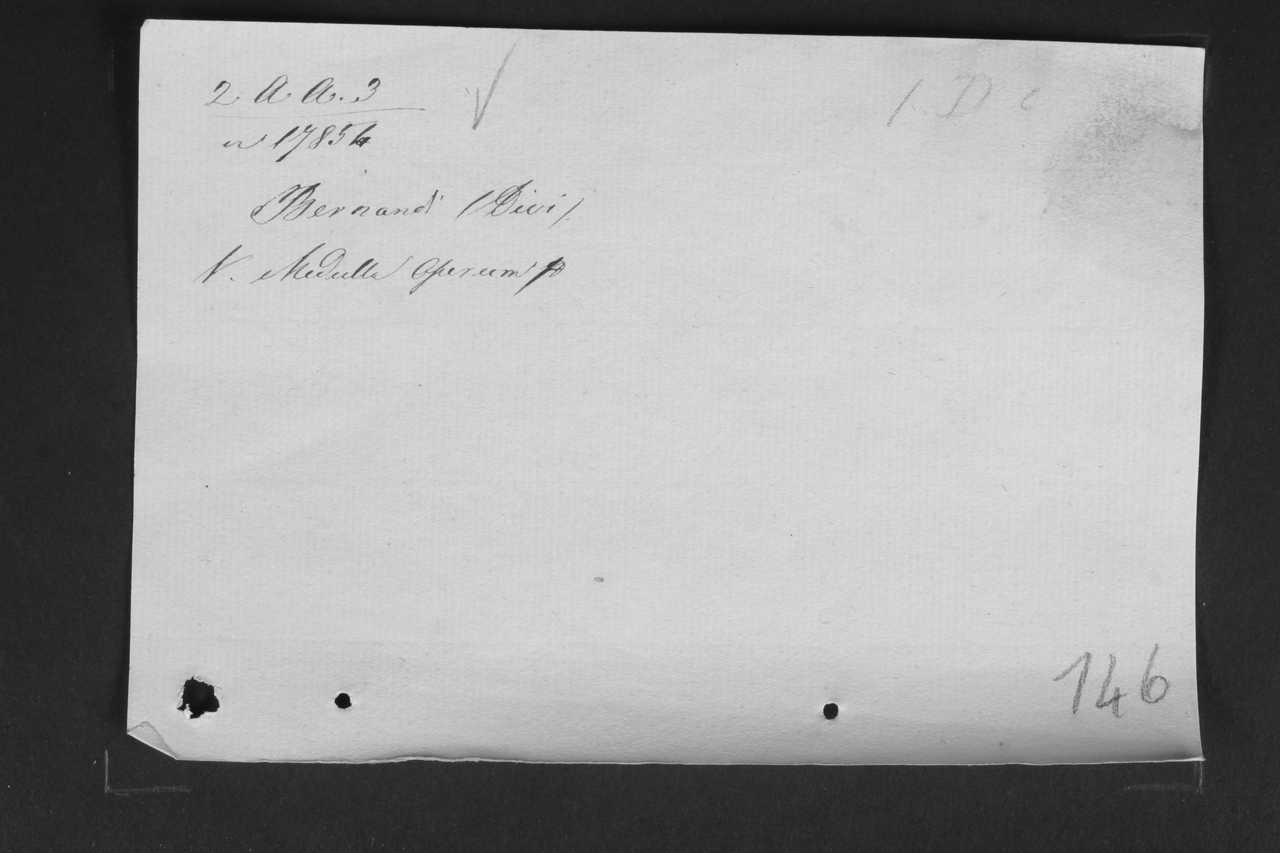 2 A A. 3
1. D c
n 17854
Bernardi (Divi)
V. Medulla Operum p
146